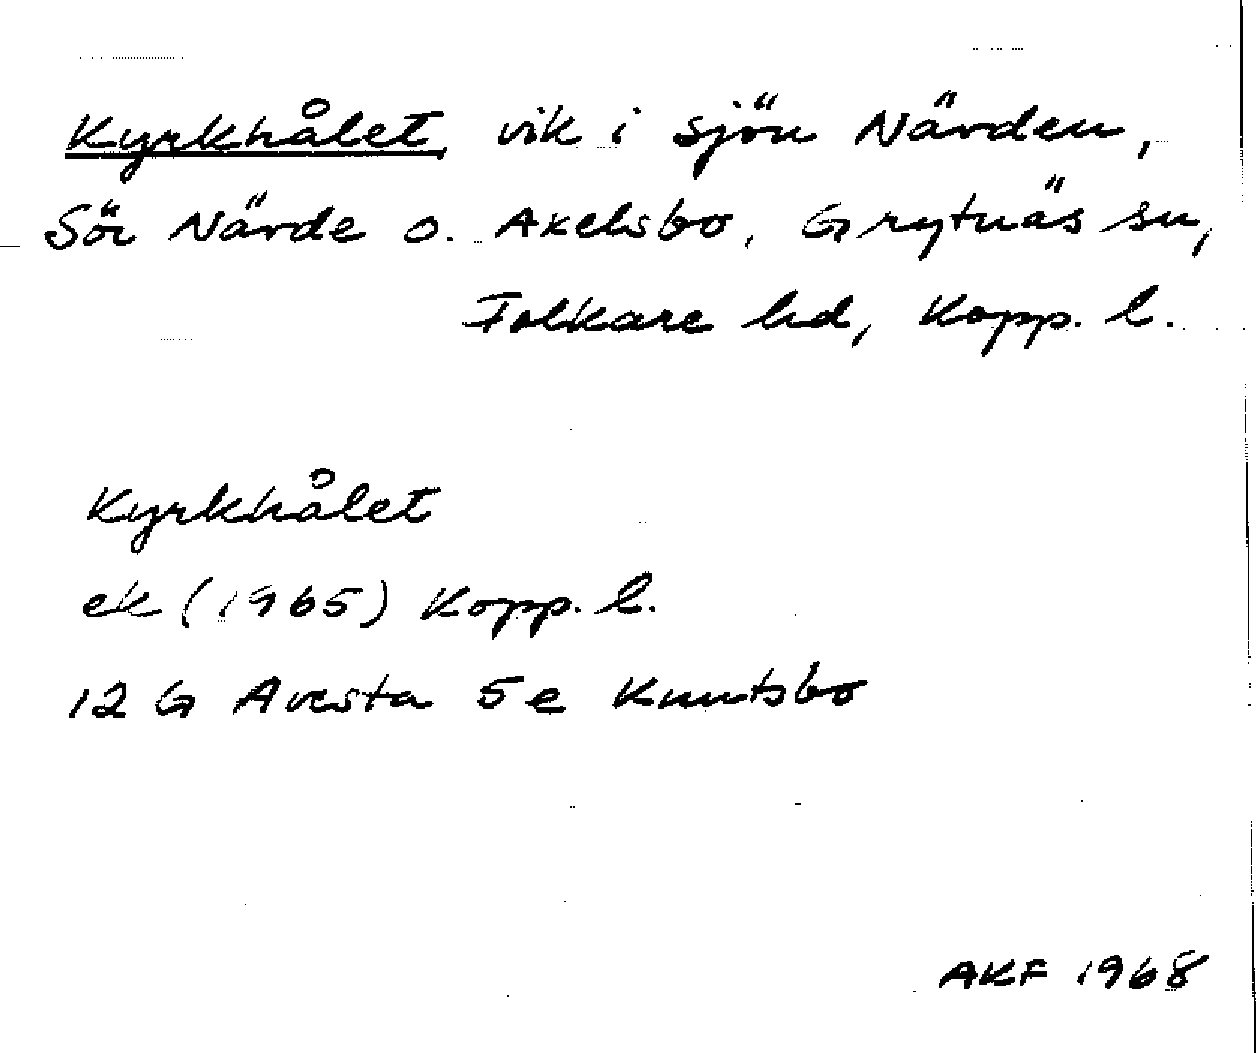 Kyrkhålet, vik i sjön Närden,
Sör Närde o. Axelsbo, Grytnäs sn,
Folkare hd, Kopp. l.
Kyrkhålet
ek (1965) Kopp. l.
12 G Avesta 5 e Knutsbo
AKF 1968